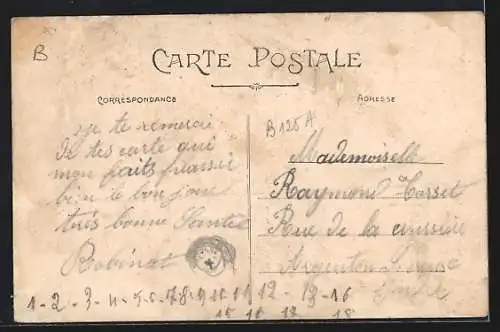 B
CARTE POSTALE
CORRESPONDANCE
ADRESSE
B 125 A
je te remerci
de tes carte qui
mon faits
bien le bon jour
très bonne Santée
Robinat
Mademoiselle
Raymond
Rue de la
Argenton
Indre
1-2-3-4-5-6-7-8-9 10 11 12 - 13 - 16
15 18